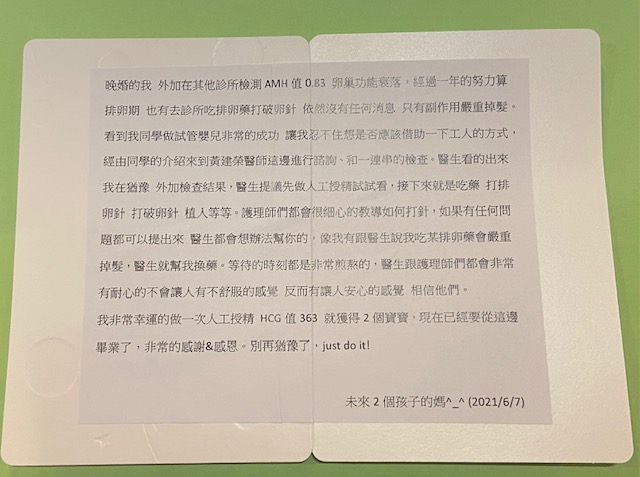 晚婚的我 外加在其他診所檢測 AMH 值 0.83 卵巢功能衰落，經過一年的努力算
排卵期 也有去診所吃排卵藥打破卵針 依然沒有任何消息 只有副作用嚴重掉髮。
看到我同學做試管嬰兒非常的成功 讓我忍不住想是否應該借助一下工人的方式，
經由同學的介紹來到黃建榮醫師這邊進行諮詢、和一連串的檢查。醫生看的出來
我在猶豫 外加檢查結果，醫生提議先做人工授精試試看，接下來就是吃藥 打排
卵針 打破卵針 植人等等。護理師們都會很細心的教導如何打針，如果有任何問
題都可以提出來 醫生都會想辦法幫你的，像我有跟醫生說我吃某排卵藥會嚴重
掉髮，醫生就幫我換藥。等待的時刻都是非常煎熬的，醫生跟護理師們都會非常
有耐心的不會讓人有不舒服的感覺 反而有讓人安心的感覺 相信他們。
我非常幸運的做一次人工授精 HCG 值 363 就獲得 2 個寶寶，現在已經要從這邊
畢業了，非常的感謝&感恩。別再猶豫了，just do it!
未來 2 個孩子的媽^_^ (2021/6/7)